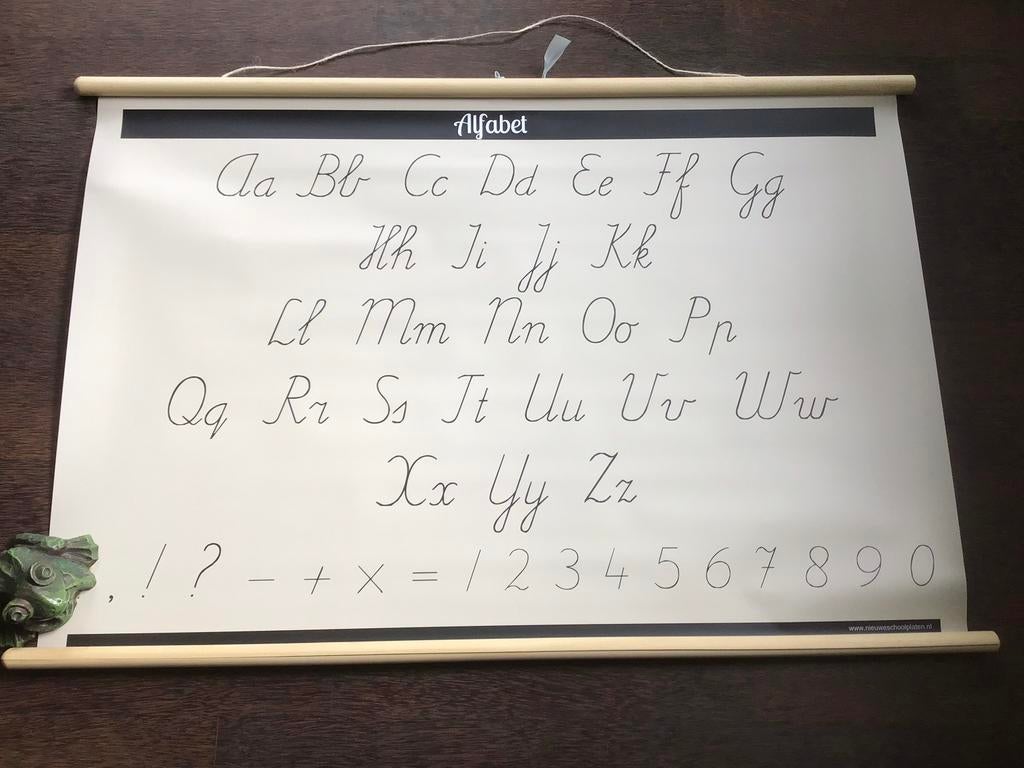 Alfabet
Aa Bb Cc Dd Ee Ff Gg
Hh Ii Jj Kk
Ll Mm Nn Oo Pp
Qq Rr Ss Tt Uu Vv Ww
Xx Yy Zz
, ! ? - + x = 1 2 3 4 5 6 7 8 9 0
www.nieuweschoolplaten.nl